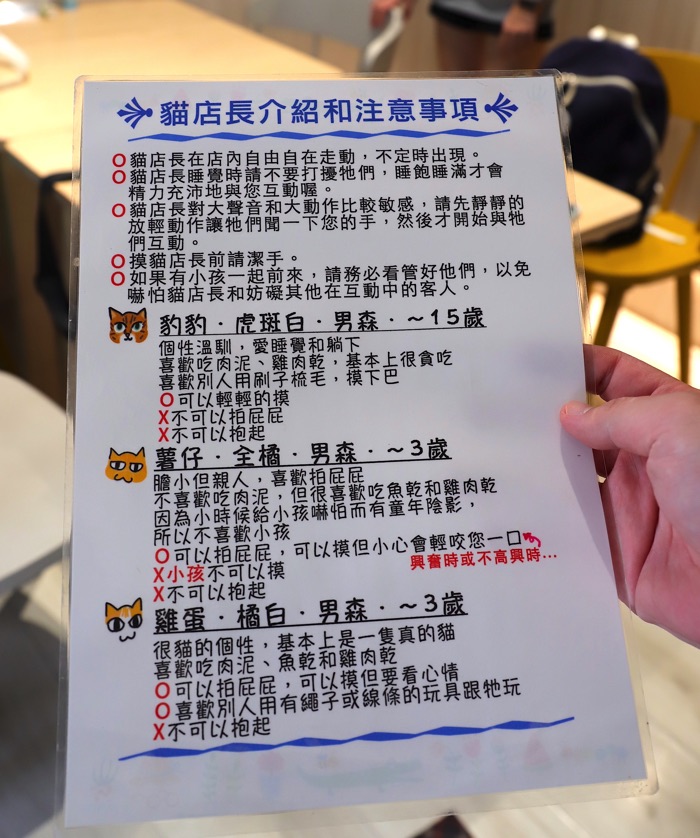 貓店長介紹和注意事項
O貓店長在店內自由自在走動，不定時出現。
O貓店長睡覺時請不要打擾牠們，睡飽睡滿才會
精力充沛地與您互動喔。
O貓店長對大聲音和大動作比較敏感，請先靜靜的
放輕動作讓牠們聞一下您的手，然後才開始與牠
們互動。
O摸貓店長前請潔手。
O如果有小孩一起前來，請務必看管好他們，以免
嚇怕貓店長和妨礙其他在互動中的客人。
豹豹．虎斑白．男森．～15歲
個性溫馴，愛睡覺和躺下
喜歡吃肉泥、雞肉乾，基本上很貪吃
喜歡別人用刷子梳毛，摸下巴
O可以輕輕的摸
X不可以拍屁屁
X不可以抱起
薯仔．全橘．男森．～3歲
膽小但親人，喜歡拍屁屁
不喜歡吃肉泥，但很喜歡吃魚乾和雞肉乾
因為小時候給小孩嚇怕而有童年陰影，
所以不喜歡小孩
O可以拍屁屁，可以摸但小心會輕咬您一口
興奮時或不高興時...
X小孩不可以摸
X不可以抱起
雞蛋．橘白．男森．～3歲
很貓的個性，基本上是一隻真的貓
喜歡吃肉泥、魚乾和雞肉乾
O可以拍屁屁，可以摸但要看心情
O喜歡別人用有繩子或線條的玩具跟牠玩
X不可以抱起